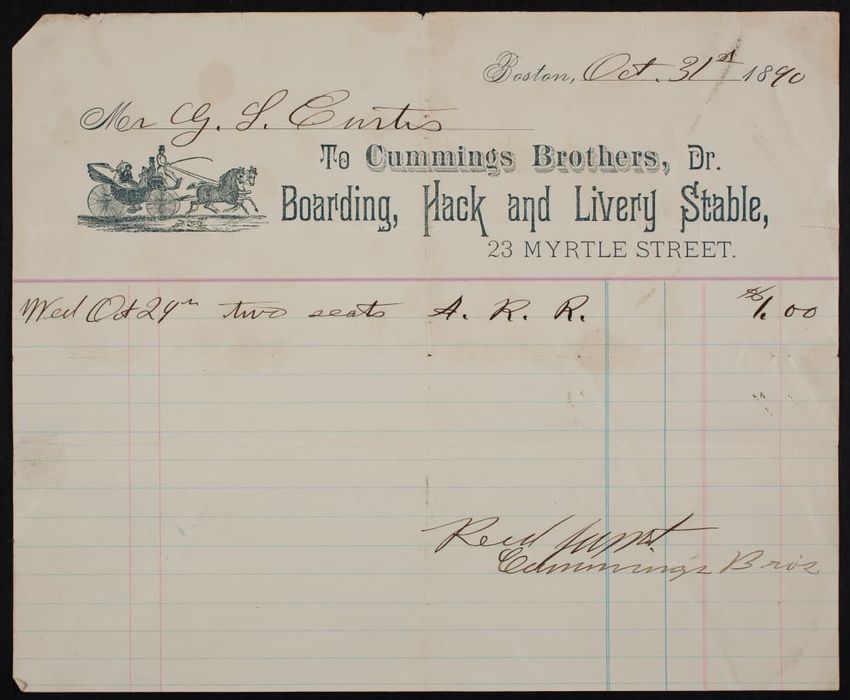 Boston, Oct. 31st 1890
Mr G. S. Curtis
To Cummings Brothers, Dr.
Boarding, Hack and Livery Stable,
23 MYRTLE STREET.
Wed Oct 29th two seats A. R. R. $1.00
Recd payment
Cummings Bros